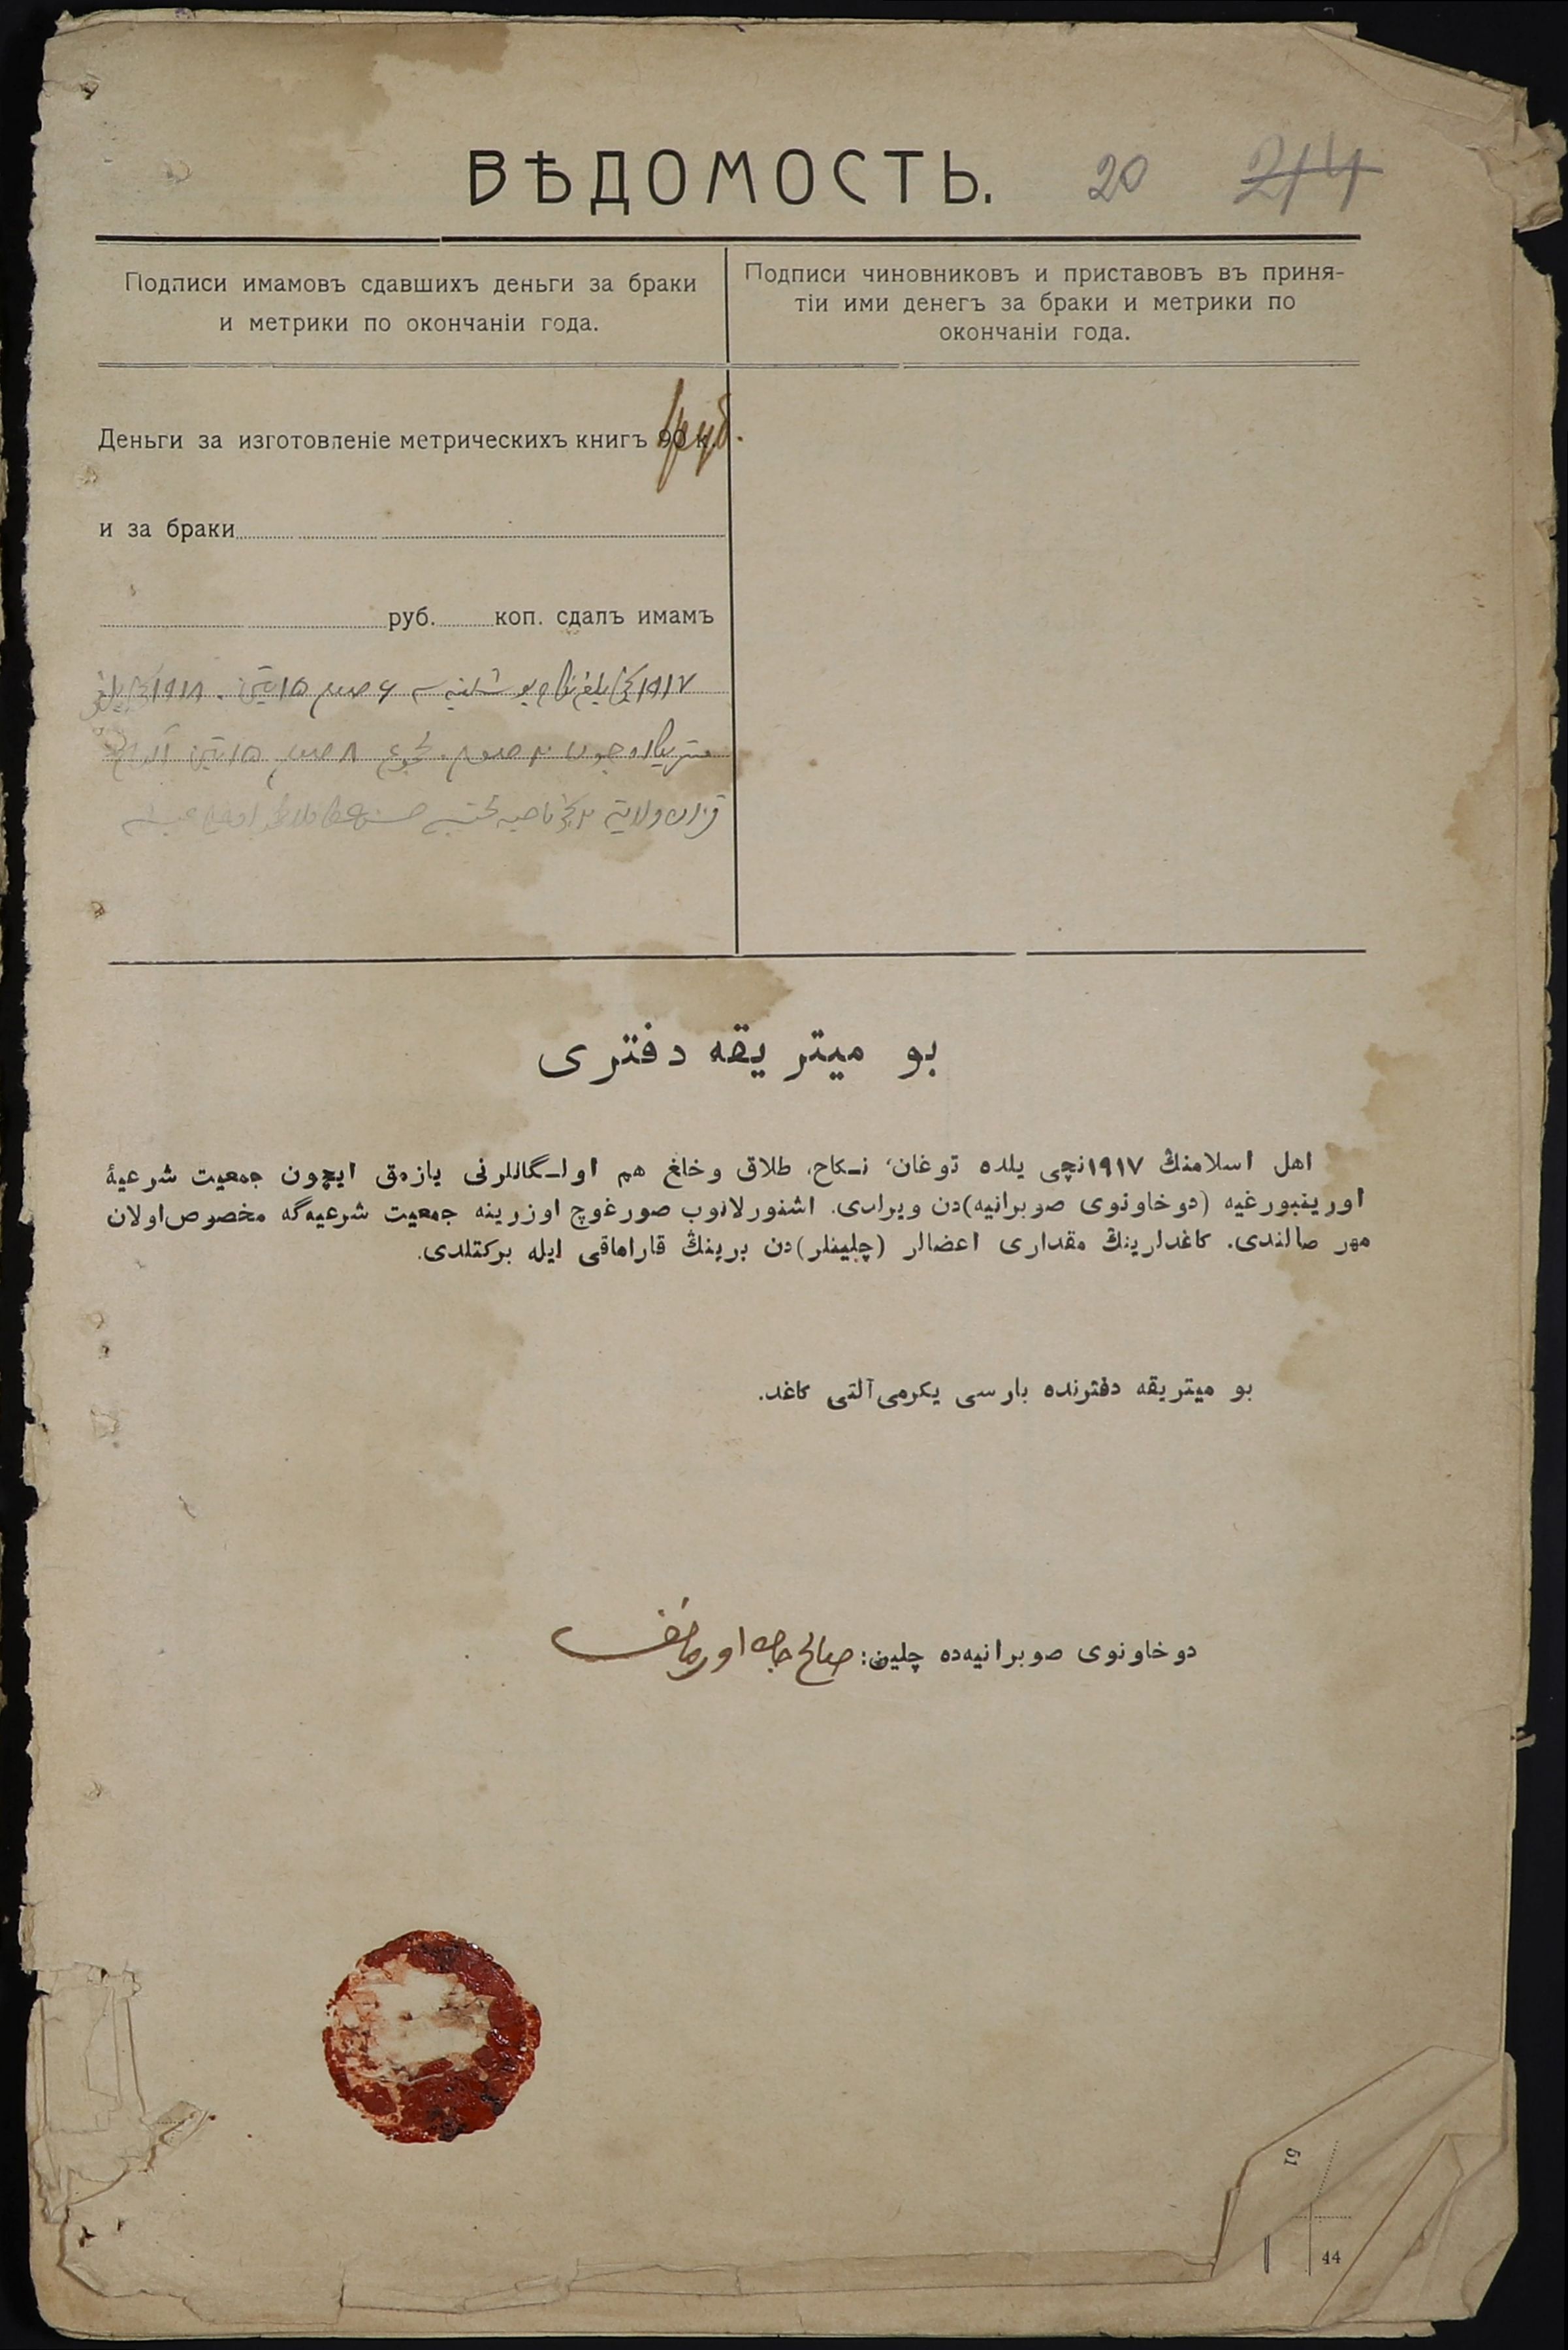 ВѢДОМОСТЬ. 20 244
Подписи имамовъ сдавшихъ деньги за браки
и метрики по окончаніи года.
Подписи чиновниковъ и приставовъ въ приня-
тіи ими денегъ за браки и метрики по
окончаніи года.
Деньги за изготовленіе метрическихъ книгъ 90 к. 1 руб.
и за браки
руб. коп. сдалъ имамъ
۱۹۱۷
بو ميتريقه دفترى
اهل اسلامنڭ ۱۹۱۷نچى يلده توغان، نـكاح، طلاق وخلغ هم اولـگاللرنى يازمق ايچون جمعيت شرعيۀ
اورينبورغيه (دوخاونوى صوبرانيه)دن ويرلدى. اشنورلانوب صورغوچ اوزرينه جمعيت شرعيه‌گه مخصوص اولان
مهر صالندى. كاغدلرينڭ مقدارى اعضالر (چلينلر)دن برينڭ قاراماقى ايله بركتلدى.
بو ميتريقه دفترنده بارسى يكرمى آلتى كاغد.
دوخاونوى صوبرانيه‌ده چلين: صالح جان اورمانف
51
44